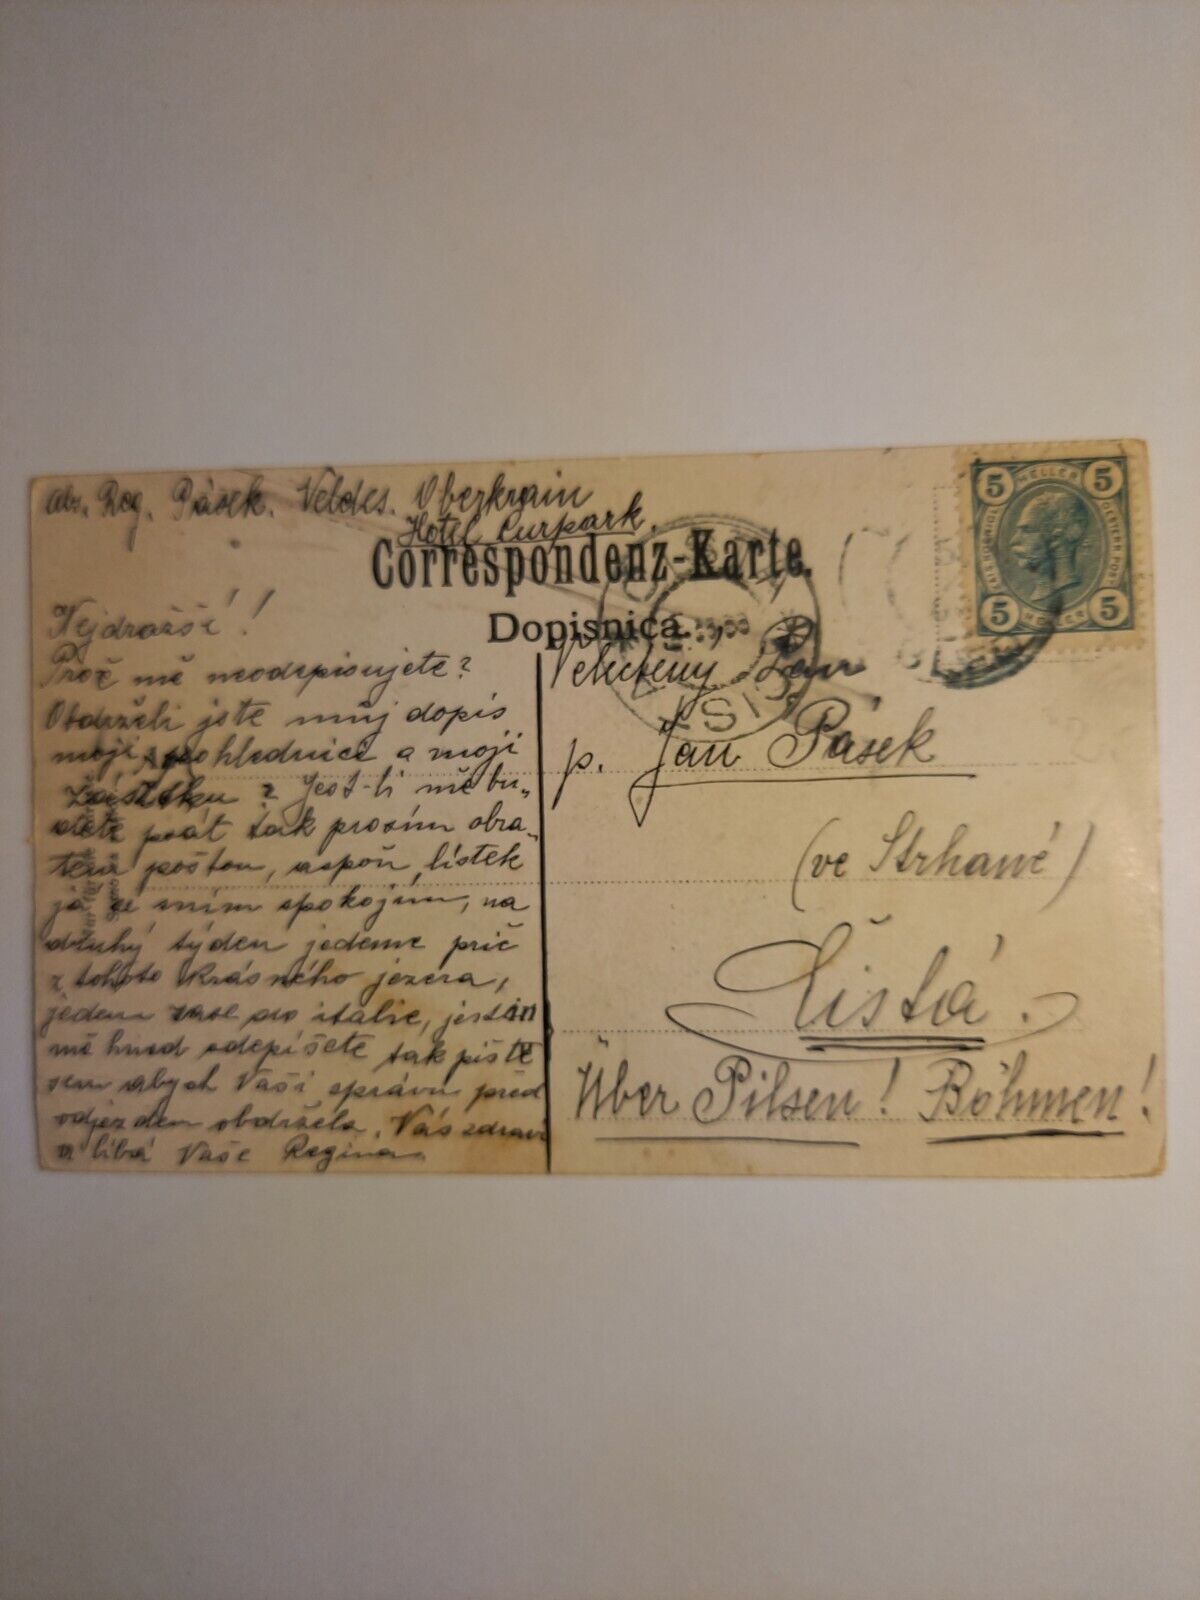 abs. Reg. Pásek. Veldes. Oberkrain
Hotel Curpark.
Correspondenz-Karte.
Dopisnica.
5 HELLER 5
5 HELLER 5
Nejdražší!
Proč mě neodepisujete?
Obdrželi jste můj dopis
moji pohlednici a moji
? Jest-li mě bu„
dete psát tak prosím obra„
tem poštou, aspoň lístek
já se s ním spokojím, na
druhý týden jedeme prič
z tohoto krásného jezera,
jedem zase do italie,
mě hned odepíšete tak pište
sem abych Vaši správu před
odjezdem obdržela. Vás zdraví
a líbá Vaše Regina
Velectěný Pan
p. Jan Pásek
(ve Strhané)
Čistá.
Über Pilsen! Böhmen!